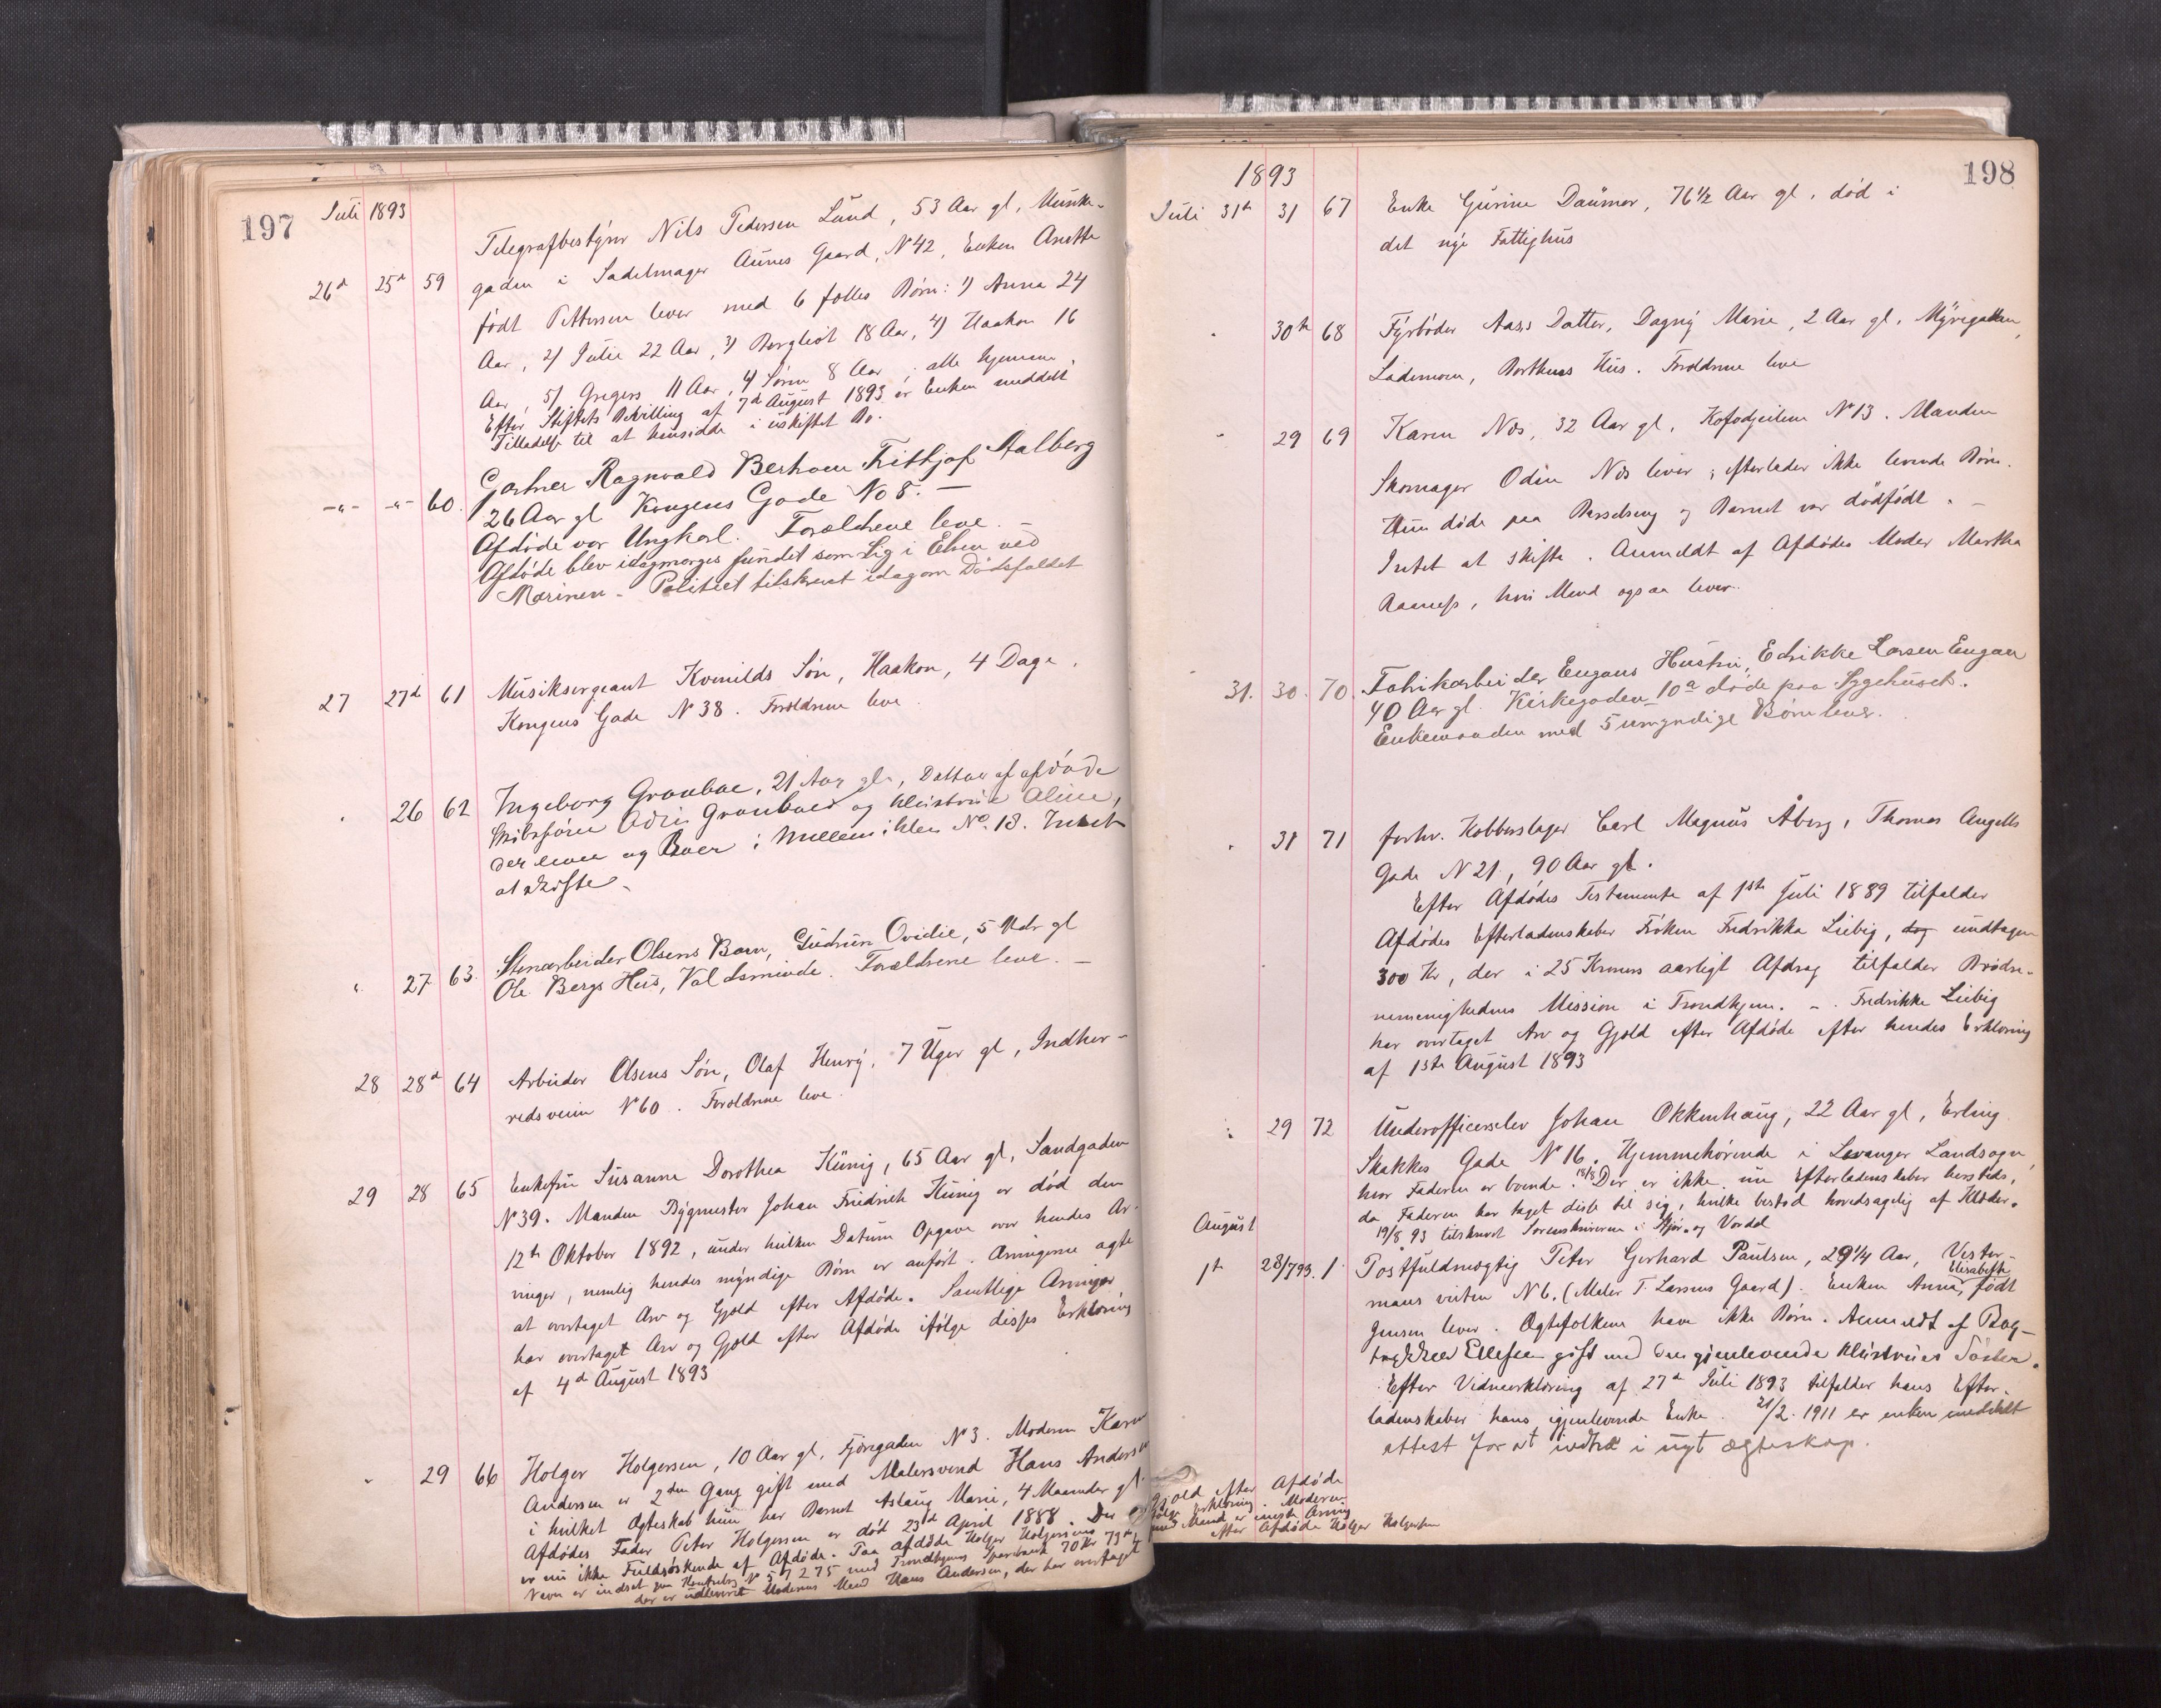 197
Juli 1893
26d 25d 59 Telegrafbestyrer Nils Pedersen Lund, 53 Aar gl, Munke-
gaden i Sadelmager Aunes Gaard, N 42, Enken Anette
født Pettersen lever med 6 fælles Børn: 1) Anna 24
Aar, 2) Julie 22 Aar, 3) Bergliot 18 Aar, 4) Haakon 16
Aar, 5) Gregers 11 Aar, 6) Søren 8 Aar, alle hjemme.
Efter Stiftets Bevilling af 7d August 1893 er Enken meddelt
Tilladelse til at hensidde i uskiftet Bo.
-"- -"- 60. Gartner Ragnvald Frithjof Aalberg
26 Aar gl Kongens Gade No 8. —
Afdøde var Ungkarl. Forældrene leve. —
Afdøde blev idagmorges fundet som Lig i Elven ved
Marinen – Politiet tilskrevet idag om Dødsfaldet
27 27d 61 Musiksergeant Kvenilds Søn, Haakon, 4 Dage,
Kongens Gade N 38. Forældrene leve.
" 26 62 Ingeborg Graabæe, 21 Aar gl., Datter af afdøde
og Hustrue Aline,
der lever og Boer i Mellemiklen No. 18. Intet
at skifte.
" 27 63. Stenarbeider Olsens Barn, Gudrun Ovidie, 5 Mdr gl
Ole Bergs Hus, Valdsminde. Forældrene leve. —
28 28d 64 Arbeider Olsens Søn, Olaf Henry, 7 Uger gl, Indher-
redsveien N 60. Forældrene leve.
29 28 65 Enkefru Susanne Dorothea Künig, 65 Aar gl, Sandgaden
N 39. Manden Bygmester Johan Friedrich Künig er død den
12te Oktober 1892, under hvilken Datum Opgave over hendes Ar-
vinger, nemlig hendes myndige Børn er anført. Arvingerne agte
at overtaget Arv og Gjæld efter Afdøde. Samtlige Arvinger
har overtaget Arv og Gjæld efter Afdøde ifølge disses Erklæring
af 4d August 1893
" 29 66 Holger Holgersen, 10 Aar gl, Fjæregaden N 3. Moderen Karen
Andersen er 2den Gang gift med Malersvend Hans Andersen
i hvilket Ægteskab hun har Barnet Aslaug Marie, 4 Maaneder gl.
Afdødes Fader Peter Holgersen er død 23d April 1888. Der
er nu ikke Fuldsøskende af Afdøde. Paa afdøde Holger Holgersens
Navn er indsat paa Kontrabog N 57275 med Trondhjems Sparebank 70 Kr 73
der er udleveret Moderens Mand Hans Andersen, der har overtaget
Gjæld efter Afdøde
ifølge Erklæring. Moderen
med Mand er eneste Arving
efter Afdøde Holger Holgersen
198
1893
Juli 31te 31 67 Enke Gurine Daumer, 76 1/2 Aar gl, død i
det nye Fattighus
" 30te 68 Fyrbøder Aas's Datter, Dagny Marie, 2 Aar gl, Myregaden,
Lademoen, Hus. Forældrene leve
" 29 69 Karen Næs, 32 Aar gl, Kofodgeilene No 13. Manden
Skomager Odin Næs lever; efterlader ikke levende Børn.
Hun døde paa Barselseng og Barnet var dødfødt. –
Intet at skifte. Anmeldt af Afdødes Moder Martha
, hvis Mand ogsaa lever.
" 31. 30. 70. Fabrikarbeider Engans Hustru, Edrikke Larsen Engan
40 Aar gl. Kirkegaden 10a døde paa Sygehuset.
Enkemanden med 5 umyndige Børn lever.
" 31 71 forhv. Kobberslager Carl Magnus Åberg, Thomas Angells
Gade N 21, 90 Aar gl.
Efter Afdødes Testamente af 1ste Juli 1889 tilfalder
Afdødes Efterladenskaber Frøken Fredrikka Liebig, dog undtagen
300 Kr, der i 25 Kroners aarligt Afdrag tilfalder Brødre-
menighedens Mission i Trondhjem. –. Fredrikke Liebig
har overtaget Arv og Gjæld efter Afdøde efter hendes Erklæring
af 1ste August 1893
" 29 72 Underofficerselev Johan Okkenhaug, 22 Aar gl, Erling
Skakkes Gade N 16. Hjemmehørende i Levanger Landsogn,
hvor Faderen er boende. 18/8 Der er ikke nu Efterladenskaber hersteds,
da Faderen har taget disse til sig, hvilke bestod hovedsagelig af Klæder.
19/8 93 tilskrevet Sorenskriveren i Stjør- og Værdal
August
1te 28/7 93. 1. Postfuldmægtig Peter Gerhard Paulsen, 29 1/4 Aar, Vester-
mans veiten N 6. (Maler T. Larsens Gaard). Enken Anna Elisabeth, født
Jensen lever. Ægtefolkene have ikke Børn. Anmeldt af Bog-
trykker Ellefsen gift med den gjenlevende Hustrues Søster.
Efter Vidneerklæring af 27de Juli 1893 tilfalder hans Efter-
ladenskaber hans igjenlevende Enke. 21/2. 1911 er enken meddelt
attest for at indtræ i nyt ægteskap.